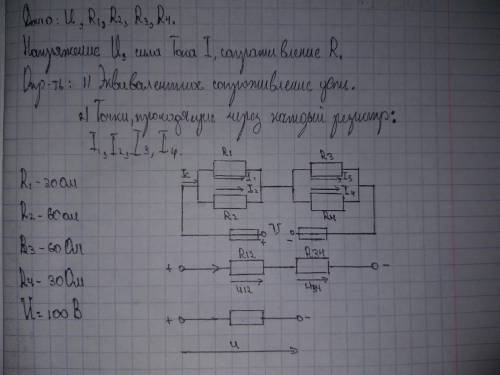 Дано: U, R1, R2, R3, R4.
Напряжение U, сила Тока I, сопротивление R.
Опр-ть: 1) Эквивалентное сопротивление цепи.
2) Токи, проходящие через каждый резистр:
I1, I2, I3, I4.
R1 - 30 Ом
R2 - 60 Ом
R3 - 60 Ом
R4 - 30 Ом
U = 100 В
R1 R3
I1 I3
I2 I4
R2 R4
+ U -
+ R12 R34 -
U12 U34
+ -
U